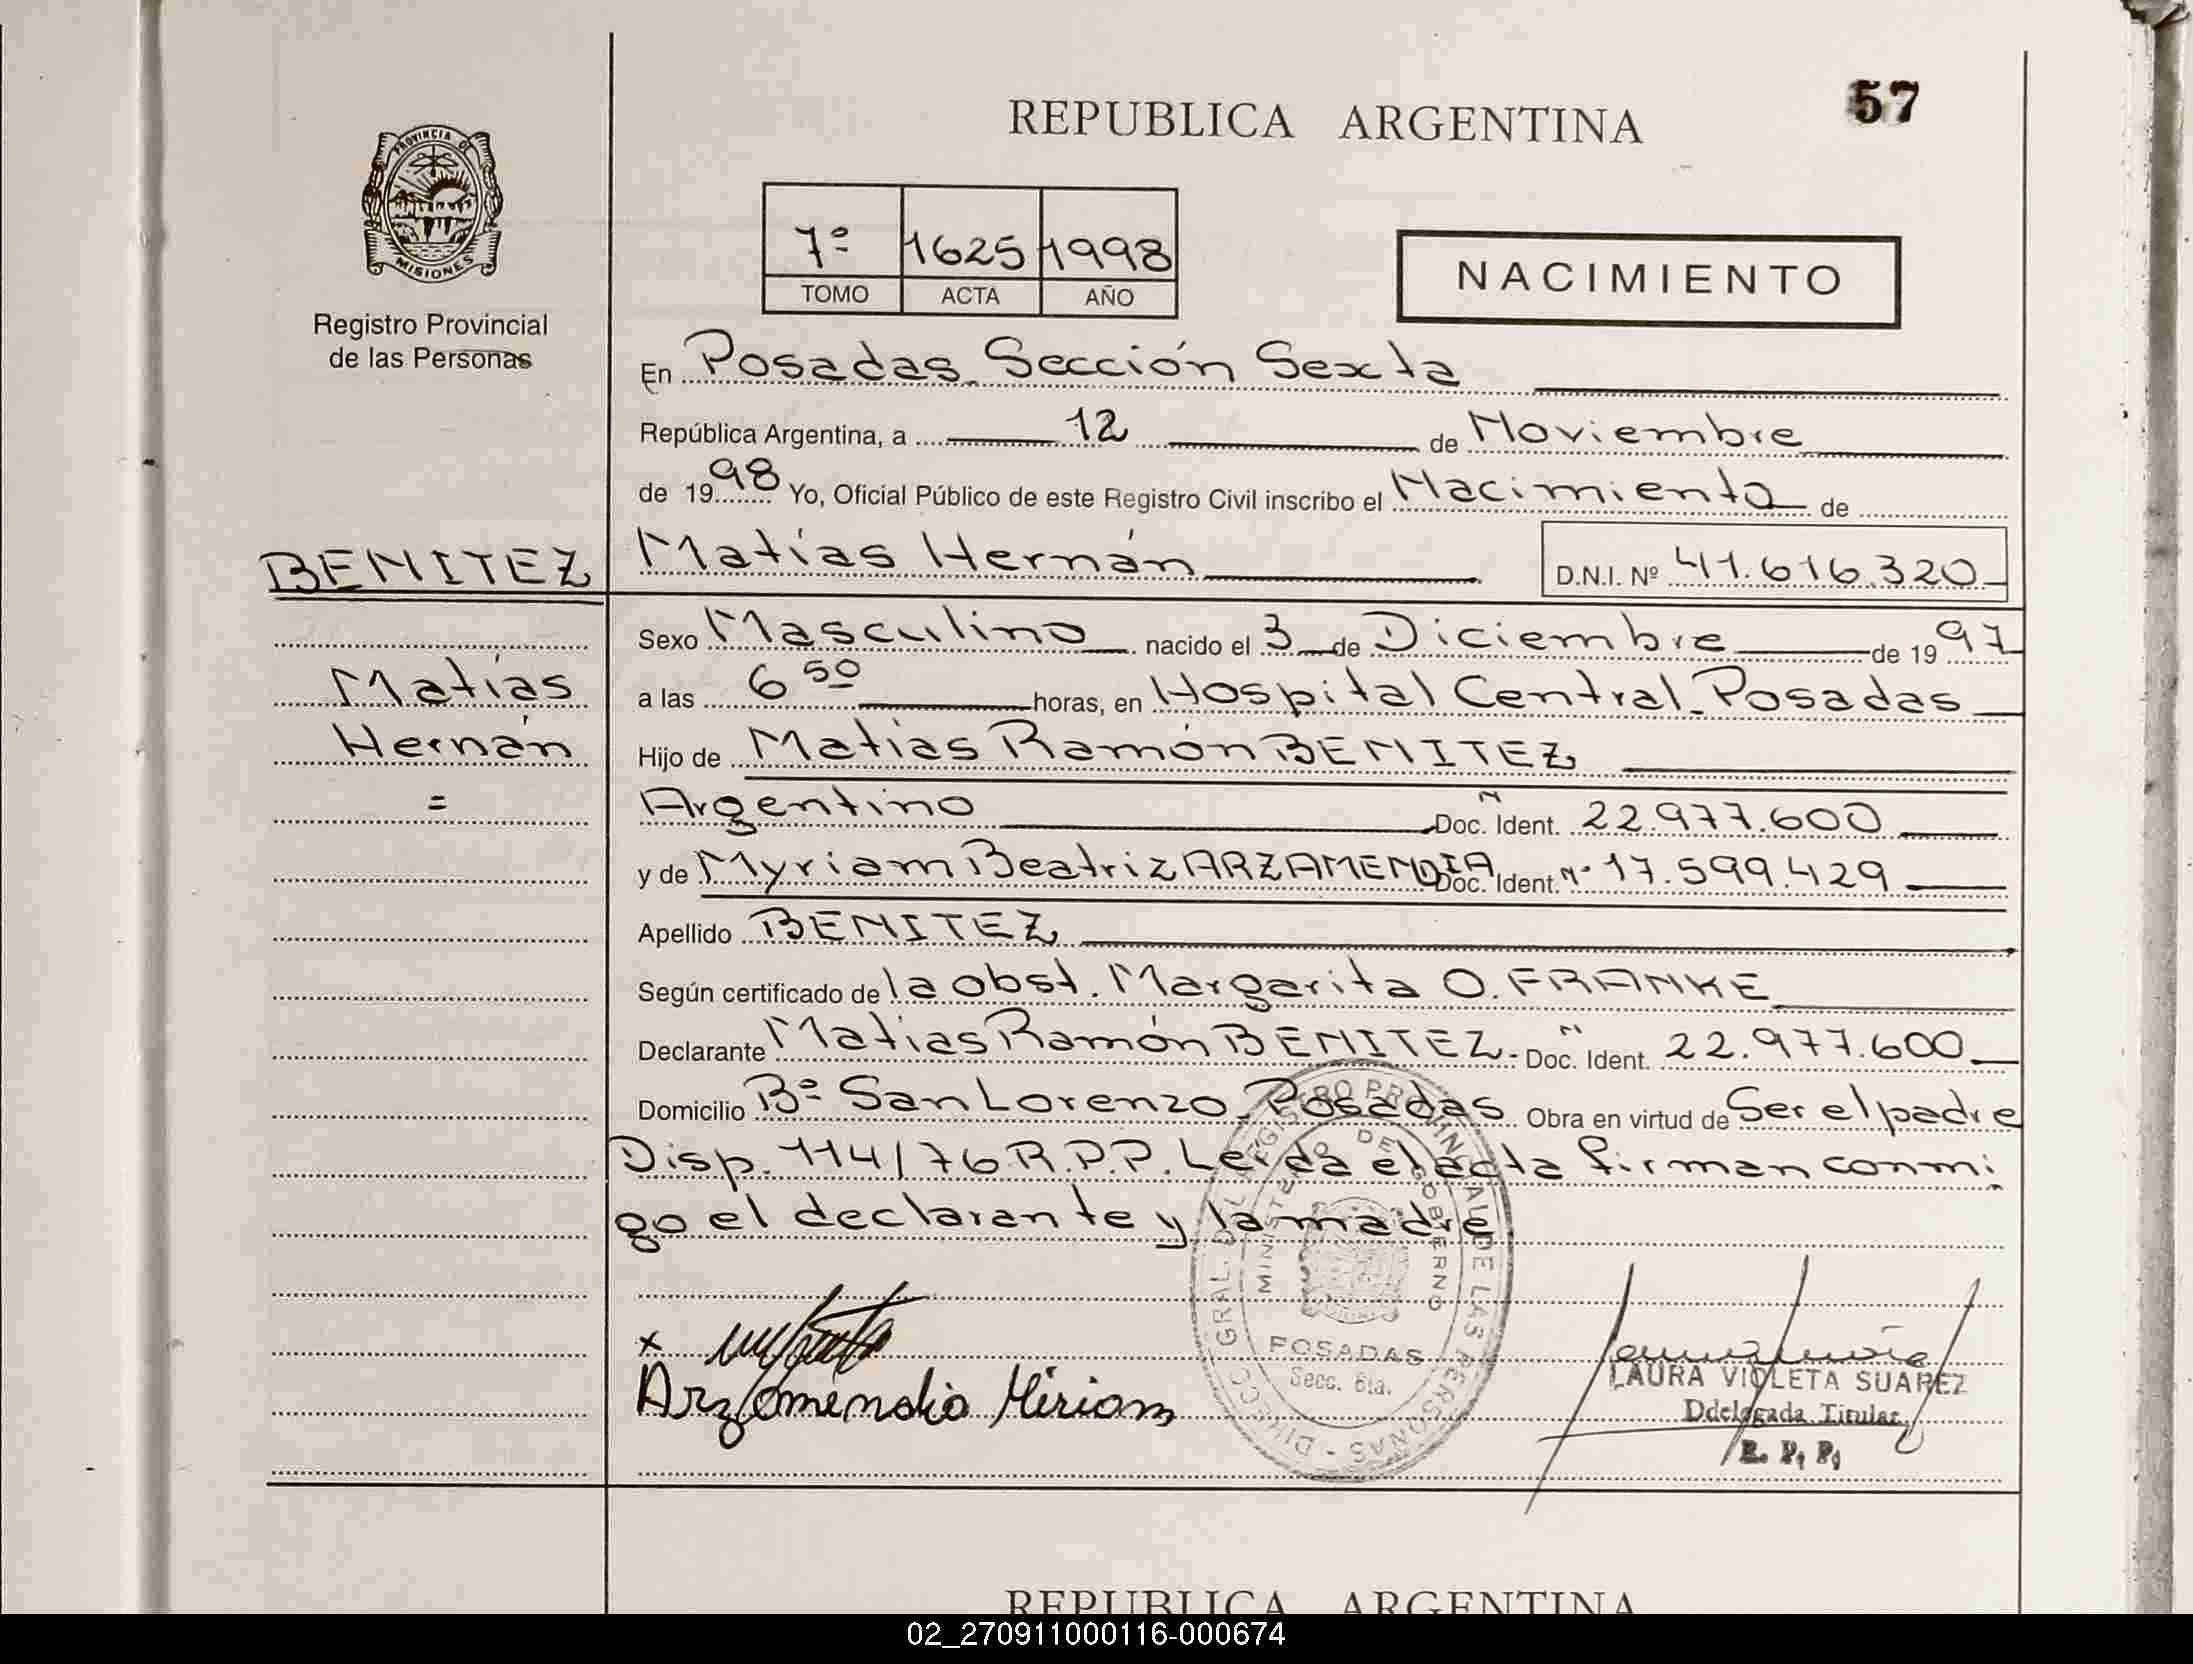 57
REPUBLICA ARGENTINA
PROVINCIA DE
MISIONES
Registro Provincial
de las Personas
7º 1625 1998
TOMO ACTA AÑO
NACIMIENTO
En Posadas Sección Sexta
República Argentina, a 12 de Noviembre
de 1998 Yo, Oficial Público de este Registro Civil inscribo el Nacimiento de
BENITEZ Matías Hernán D.N.I. Nº 41.616.320
Sexo Masculino nacido el 3 de Diciembre de 1997
Matías
a las 6 50 horas, en Hospital Central Posadas
Hernán
Hijo de Matias Ramón BENITEZ
=
Argentino Doc. Ident. 22.977.600
y de Myriam Beatriz ARZAMENDIA Doc. Ident. Nº 17.599.429
Apellido BENITEZ
Según certificado de la obst. Margarita O. FRANKE
Declarante Matias Ramón BENITEZ. Doc. Ident. 22.977.600
Domicilio Bº San Lorenzo Posadas Obra en virtud de Ser el padre
Disp. 114/76 R.P.P. Leida el acta firman conmi
go el declarante y la madre
DIRECC. GRAL. DEL REGISTRO PROVINCIAL DE LAS PERSONAS
MINISTERIO DE GOBIERNO
POSADAS
Secc. 6ta.
x
Arzamendia Miriam
LAURA VIOLETA SUAREZ
Ddelegada Titular
R. P. P.
REPUBLICA ARGENTINA
02_270911000116-000674